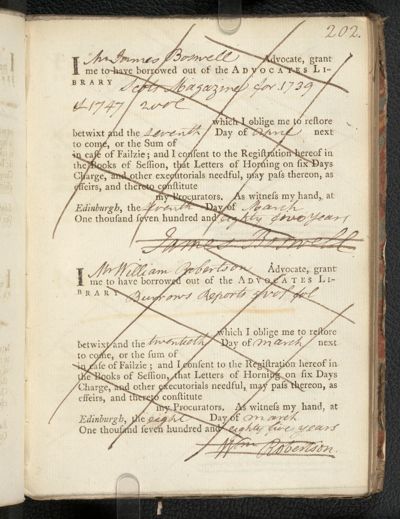 202.
I Mr James Boswell Advocate, grant
me to have borrowed out of the ADVOCATES LI-
BRARY Scots Magazine for 1739
& 1747 2 vol
which I oblige me to reſtore
betwixt and the seventh Day of next
to come, or the Sum of
in caſe of Failzie; and I conſent to the Regiſtration hereof in
the Books of Seſſion, that Letters of Horning on ſix Days
Charge, and other executorials needful, may paſs thereon, as
effeirs, and thereto conſtitute
my Procurators. As witneſs my hand, at
Edinburgh, the Day of March
One thouſand ſeven hundred and eighty five years
James Boswell
I Mr William Robertson Advocate, grant
me to have borrowed out of the ADVOCATES LI-
BRARY Burrows Reports fol
which I oblige me to reſtore
betwixt and the twentieth Day of march next
to come, or the ſum of
in caſe of Failzie; and I conſent to the Regiſtration hereof in
the Books of Seſſion, that Letters of Horning on ſix Days
Charge, and other executorials needful, may paſs thereon, as
effeirs, and thereto conſtitute
my Procurators. As witneſs my hand, at
Edinburgh, the eight Day of march
One thouſand ſeven hundred and eighty five years
Wm Robertson.